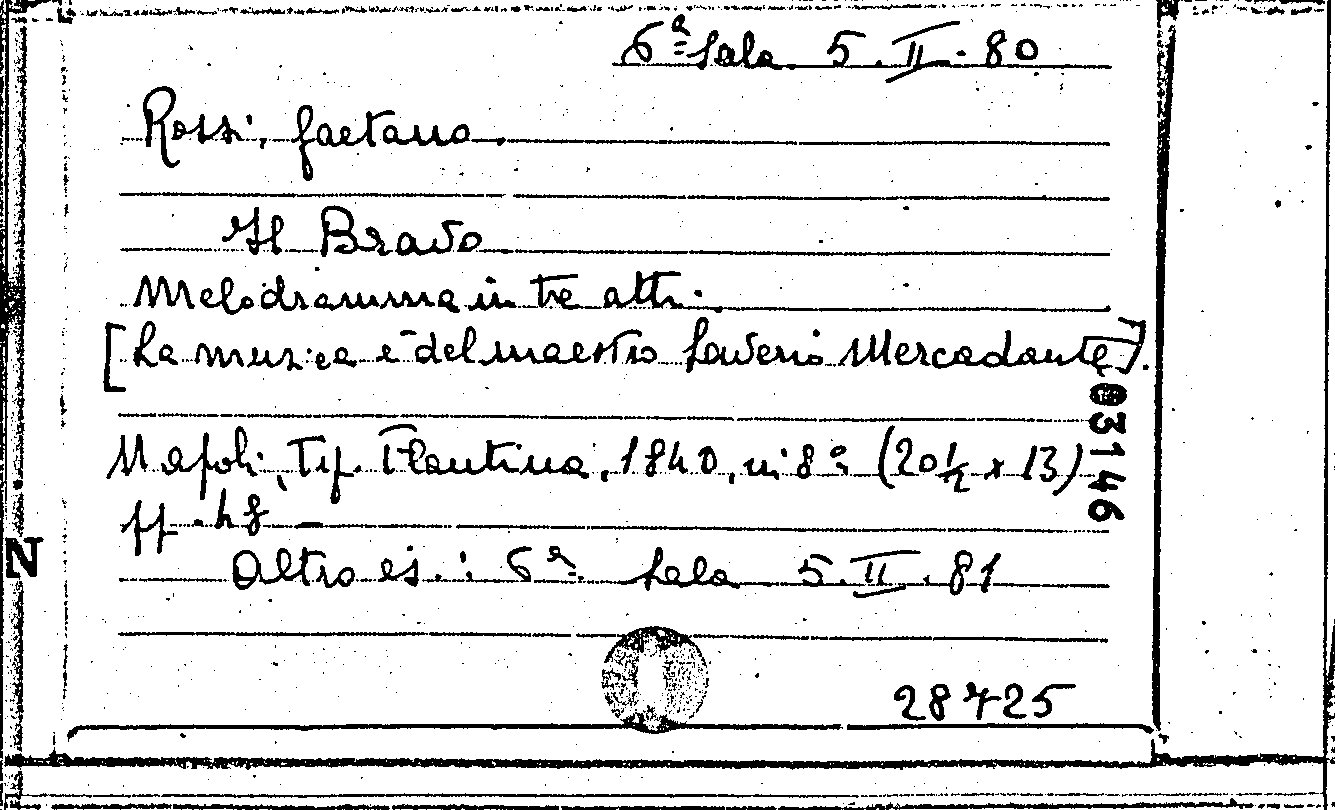 6ª Sala 5. II. 80
Rossi, Gaetano.
Il Bravo
Melodramma in tre atti.
[La musica è del maestro Saverio Mercadante].
03146
Napoli, Tip. Flautina, 1840, in 8º (20½ x 13)
pp. 48 –
N
Altro es.: 6ª Sala 5. II. 81
28725